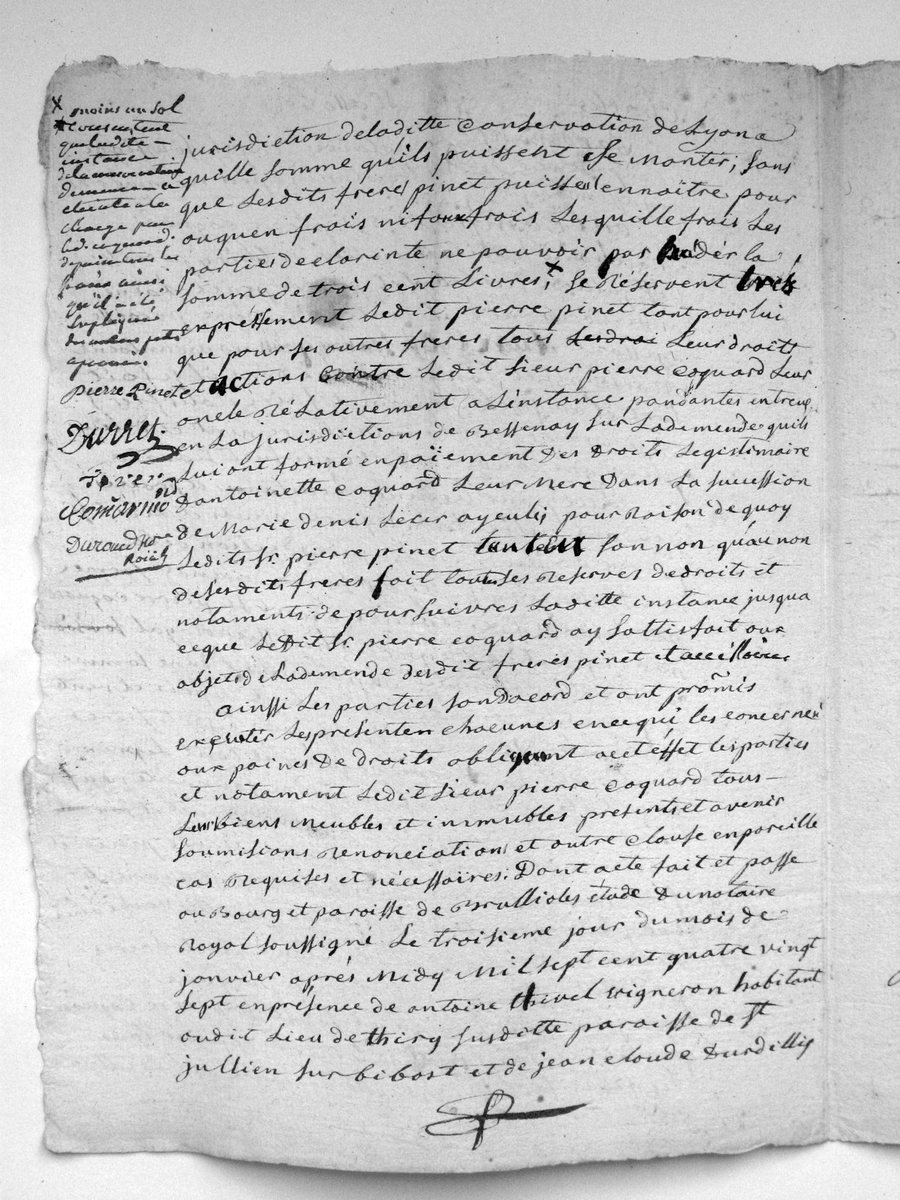 x moins un sol
que ladite
instance
de la conservation
demeure
charge pour
led. coquard
frais ainsi
qu'il a été
Expliqué
Pierre Pinet
Durret
Comarmond
Duround No.re
Roial
jurisdiction deladitte Conservation de Lyon a
quille somme quils puissent se monter, sans
que lesdits freres pinet puisse ennaitre pour
ou quen frais ni faux frais Lesquille frais Les
parties declarinte ne pouvoir pas la
somme de trois cent Livres, x se Réservent tres
expréssement Ledit pierre pinet tant pour lui
que pour ses autres freres tous Leur droits
et actions Contre Ledit sieur pierre coquard Leur
oncle Rélativement a L'instance pandantes entreux
en La jurisdictions de Bessenay sur Lademende quils
Lui ont formé en païement Des Droits Legistimaire
Dantoinette coquard Leur Mere Dans La sucession
de Marie denis pour Raison de quoy
Ledits Sr. pierre pinet tant en son non quau non
de sesdits freres fait toutes ses Reserves de droits et
notaments de poursuivres Laditte instance jusqua
ceque Ledit Sr. pierre coquard ay sattisfait aux
objets de Lademende desdit freres pinet et accessoires
ainssi Les parties son Dacord et ont promis
exécuter Les presenten chacunes en cequi les concernent
aux paines de droits obligeant acet éffet les parties
et notament Ledit sieur pierre coquard tous
Leur Biens Meubles et immubles présents et avenir
soumisions Renonciations et autre clause en pareille
cas Requises et nécessaires. Dont acte fait et passe
au Bourg et paroisse de Brullioles étude Du notaire
Royal soussigné Le troisieme jour du mois de
janvier aprés Midy Mil sept cent quatre vingt
sept en présence de antoine thivel vigneron habitant
audit Lieu de thiry susditte paroisse de St
jullien sur bibost et de jean claude Durdilly